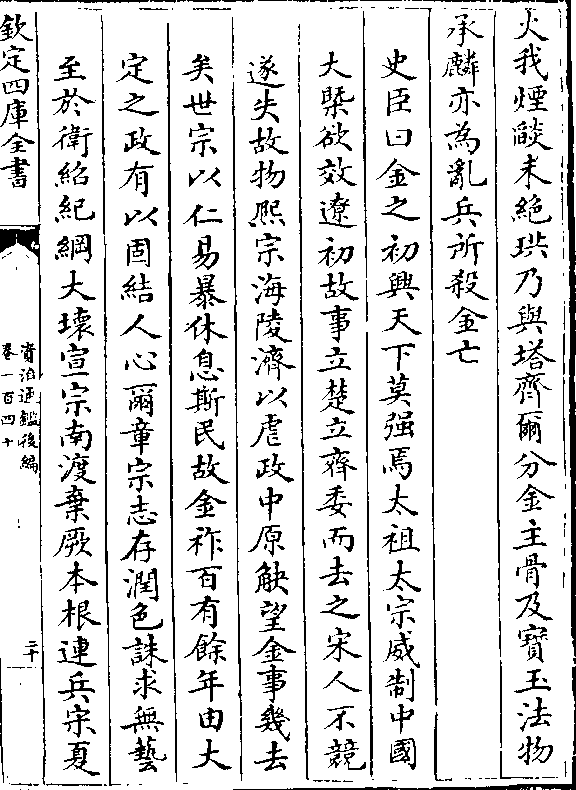 火我煙燄未絕珙乃與塔齊爾分金主骨及寶玉法物
承麟亦為亂兵所殺金亡
史臣曰金之初興天下莫强焉太祖太宗威制中國
大槩欲效遼初故事立楚立齊委而去之宋人不競
遂失故物熙宗海陵濟以虐政中原觖望金事幾去
矣世宗以仁易暴休息斯民故金祚百有餘年由大
定之政有以固結人心爾章宗志存潤色誅求無藝
至於衛紹紀綱大壞宣宗南渡棄厥本根連兵宋夏
欽定四庫全書
資治通鑑後編
卷一百四十
二十